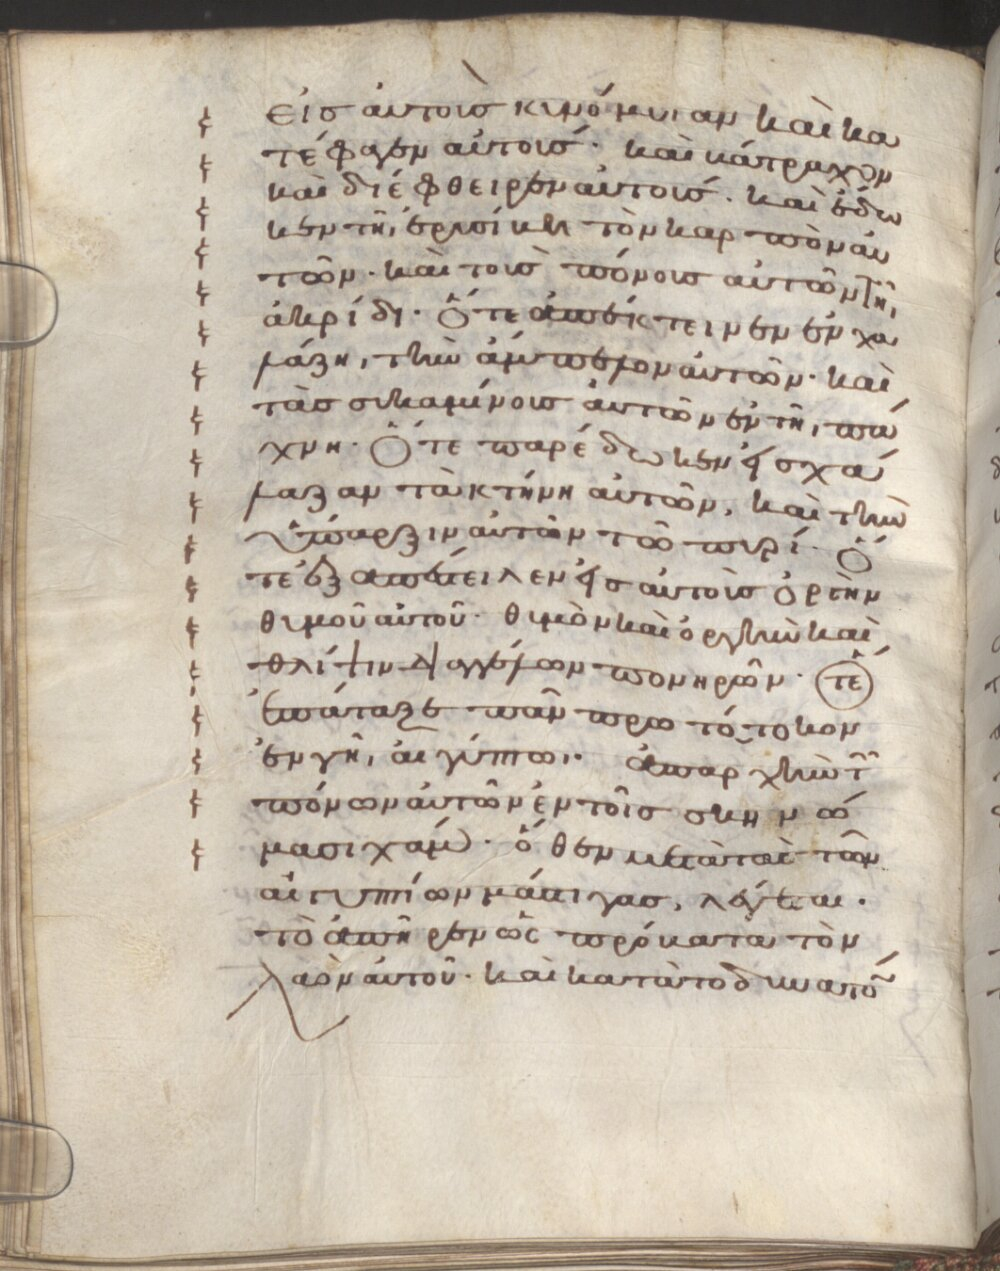 εἰς αὐτοὺς κυνόμυιαν καὶ κα
τέφαγεν αὐτούς· καὶ βάτραχον
καὶ διέφθειρεν αὐτούς· καὶ ἔδω
κεν τῆ ἐρυσίβη τὸν καρπὸν αὐ
τῶν· καὶ τοὺς πόνους αὐτῶν τῆ
ἀκρίδι· Ὅτε ἀπέκτεινεν ἐν χα
λάζη, τὴν ἄμπελον αὐτῶν· καὶ
τὰς συκαμίνους αὐτῶν ἐν τῆ πά
χνη· Ὅτε παρέδωκεν εἰς χά
λαζαν τὰ κτήνη αὐτῶν, καὶ τὴν
ὕπαρξιν αὐτῶν τῶ πυρί· Ὅ
τε ἐξαπέστειλεν εἰς αὐτοὺς ὀργὴν
θυμοῦ αὐτοῦ· θυμὸν καὶ ὀργὴν καὶ
θλίψιν δι' ἀγγέλων πονηρῶν· Ὅτε
ἐπάταξε πᾶν πρωτότοκον
ἐν γῆ αἰγύπτω· ἀπαρχὴν τῶν
πόνων αὐτῶν ἐν τοῖς σκηνώ
μασι χάμ· ὅθεν μετὰ τὰς τῶν
αἰγυπτίων μάστιγας, λέγεται·
τὸ ἀπῆρεν ὡς πρόβατα τὸν
λαὸν αὐτοῦ· καὶ κατὰ τὸ δυνατὸν